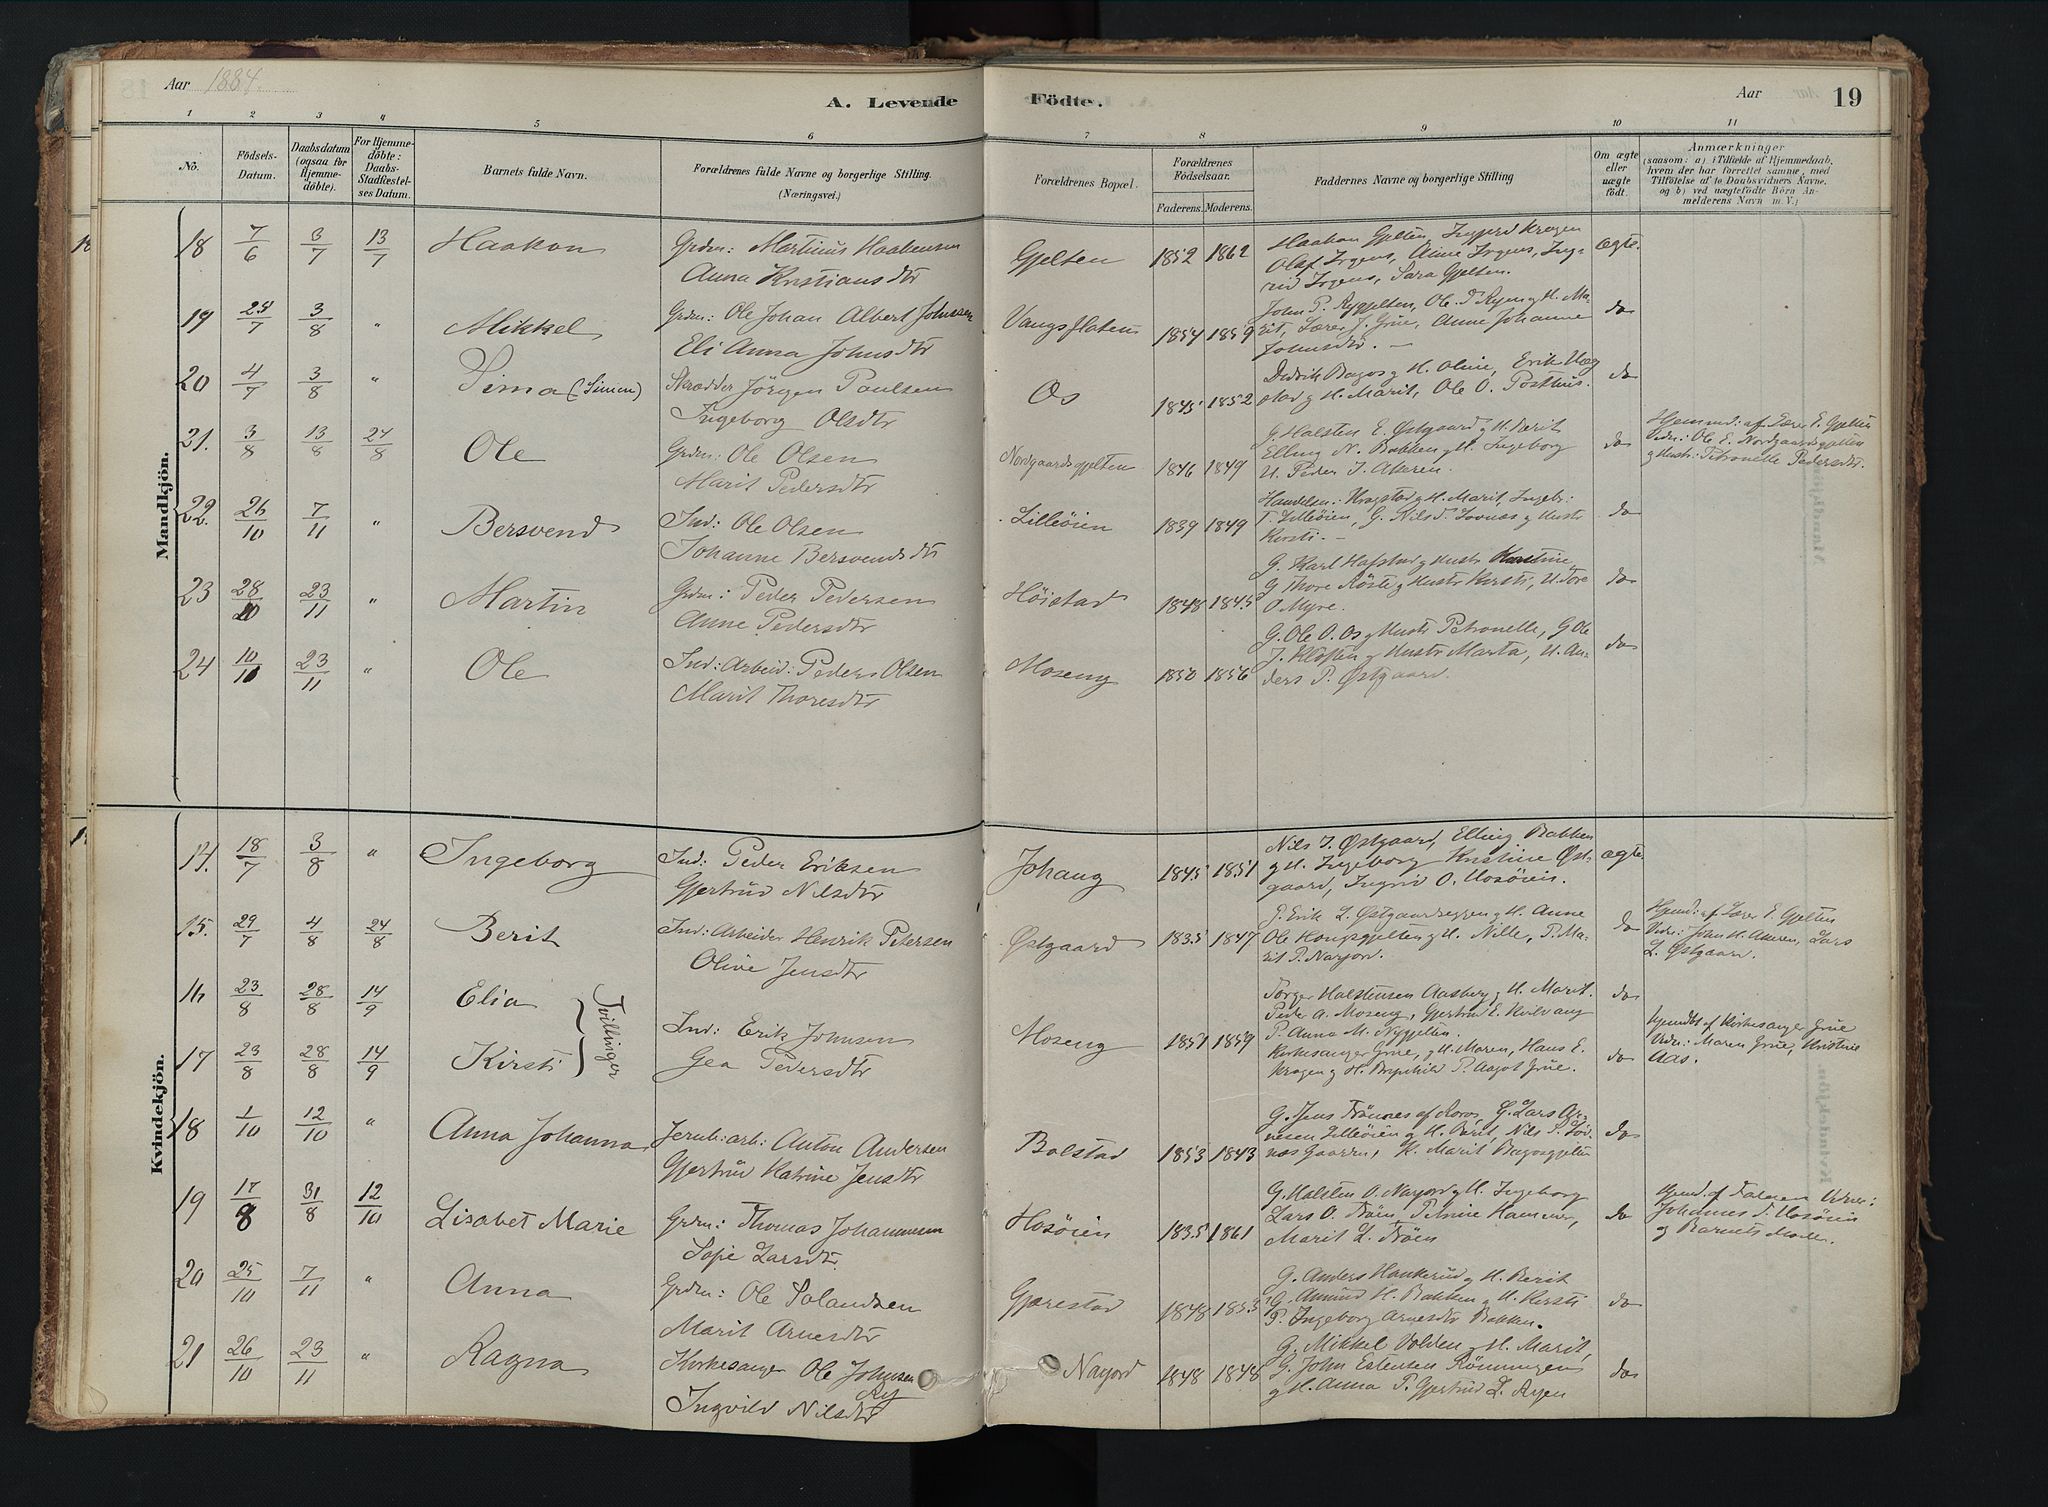 Aar 1884.
A. Levende Födte.
Aar 19
1 2 3 4 5 6 7 8 9 10 11
No.
Födsels-
Datum.
Daabsdatum
(ogsaa for
Hjemme-
döbte).
For Hjemme-
döbte:
Daabs-
Stadfæstel-
ses Datum.
Barnets fulde Navn.
Forældrenes fulde Navne og borgerlige Stilling.
(Næringsvei.)
Forældrenes Bopæl.
Forældrenes
Födselsaar.
Faderens. Moderens.
Faddernes Navne og borgerlige Stilling
Om ægte
eller
uægte
födt.
Anmærkninger
(saasom: a) i Tilfælde af Hjemmedaab,
hvem der har forrettet samme, med
Tilföielse af to Daabsvidners Navne,
og b) ved uægtefödte Börn An-
melderens Navn m. V.)
Mandkjön.
18 7/6 3/7 13/7 Haakon
Grdm: Martinus Haakensen
Anna Kristiansdtr
Gjelten 1852 1862
Haakon Gjelten, Ingjerd Krogen
Olaf Irgens, Anne Irgens, Ing-
rid Irgens, Sara Gjelten.
ægte.
19 24/7 3/8 " Mikkel
Grdm: Ole Johan Albert Johnsen
Eli Anna Johnsdtr
Vangsfloten 1854 1859
John P. Rygjelten, Ole P. Ryen og H. Ma-
rit, Lærer J. Grue, Anne Johanne
Johnsdtr. —
do
20 4/7 3/8 " Sima (Simen)
Skrædder Jörgen Paulsen
Ingeborg Olsdtr
Os 1845 1852
Didrik Bagos og H. Oline, Erik Hæg
stad og H. Marit, Ole O. Posthus.
do
21. 3/8 13/8 24/8 Ole
Grdm: Ole Olsen
Marit Pedersdtr
Nordgaardsgjelten 1846 1849
G. Halsten E. Østgaard og H. Berit
Elling N. Bakken og H. Ingeborg
U. Peder J. Akren.
do
Hjemmed: af Lærer E. Gjelten
Vidn: Ole E. Nordgaardsgjelten
og Hust: Petronelle Pedersdtr.
22. 26/10 7/11 " Bersvend
Ind: Ole Olsen
Johanne Bersvendsdtr
Lilleöien 1839 1849
Handelsm: Krogstad og H. Marit, Ingeb:
T. Lilleöien, G. Nils P. Lovnæs og Hustr
Kirsti. —
do
23 28/10 23/11 " Martin
Grdm: Peder Pedersen
Anne Pedersdtr
Höistad 1848 1845
G. Karl Hafstad og Hustr Kirstine,
G Thore Röste og Hustr Kirsti, U. Tore
O Myre.
do
24 10/11 23/11 " Ole
Ind: Arbeid: Peder Olsen
Marit Thoresdtr
Moseng 1850 1856
G. Ole O. Os og Hustr Petronelle, G Ole
J. Kloften og Hustr Marta, U. An-
ders P. Østgaard.
do
Kvindekjön.
14. 18/7 3/8 " Ingeborg
Ind: Peder Eriksen
Gjertrud Nilsdtr
Johaug 1845 1851
Nils J. Østgaard, Elling Bakken
og H. Ingeborg Kristine Øst-
gaard, Ingrid O. Hosöien.
ægte
15. 29/7 4/8 24/8 Berit
Ind: Arbeider Henrik Petersen
Olive Jensdtr
Østgaard 1835 1847
P. Erik L. Østgaardseggen og H. Anne
Ole Kongsgjelten og H. Nille, P. Ma-
rit P. Narjord.
do
Hjemd: af Lærer E. Gjelten
Vidn: John H. Akren, Lars
L. Østgaard.
16 23/8 28/8 14/9 Elia
17 23/8 28/8 14/9 Kirsti
Tvillinger
Ind: Erik Johnsen
Gea Pedersdtr
Moseng 1851 1859
Torger Halstensen Aasberg og H. Marit.
Peder A. Moseng, Gjertrud E. Kvilvang
P. Anna M. Nygjelten.
do
Kirkesanger Grue, og H. Maren, Hans E.
Krogen og H. Brynhild P. Aagot Grue.
do
Hjemdbt af Kirkesanger Grue
Vidn: Maren Grue, Kristine
Aas.
18 1/10 12/10 " Anna Johanna
Jernb: arb: Anton Andersen
Gjertrud Katrine Jensdtr
Bolstad 1853 1843
G. Jens Trönnes af Roros, G. Lars Ar-
nesen Lilleöien og H. Berit, Nils P. Löv-
næsGaarden, K. Marit Bagosgjelten
do
19 17/8 31/8 12/10 Lisabet Marie
Grdm: Thomas Johannesen
Sofie Larsdtr
Hosöien 1835 1861
G. Halsten O. Narjord og H. Ingeborg
Lars O. Tröen, Petrine Hammer,
Marit L. Tröen
do
Hjemd. af Faderen Vidner:
Johannes T. Hosöien
og Barnets Moder.
20 25/10 7/11 " Anna
Grdm: Ole Salandsen
Marit Arnesdtr
Gjærestad 1848 1855
G. Anders Hankerud og H. Berit
G. Amund H. Bakken og H. Kirsti
P. Ingeborg Arnesdtr Bakken.
do
21 26/10 23/11 " Ragna
Kirkesanger Ole Johnsen
Ry
Ingvild Nilsdtr
Narjord 1848 1848
G. Mikkel Volden og H. Marit,
G. John Estensen Römmingen
og H. Anna P. Gjertrud L. Ryen
do